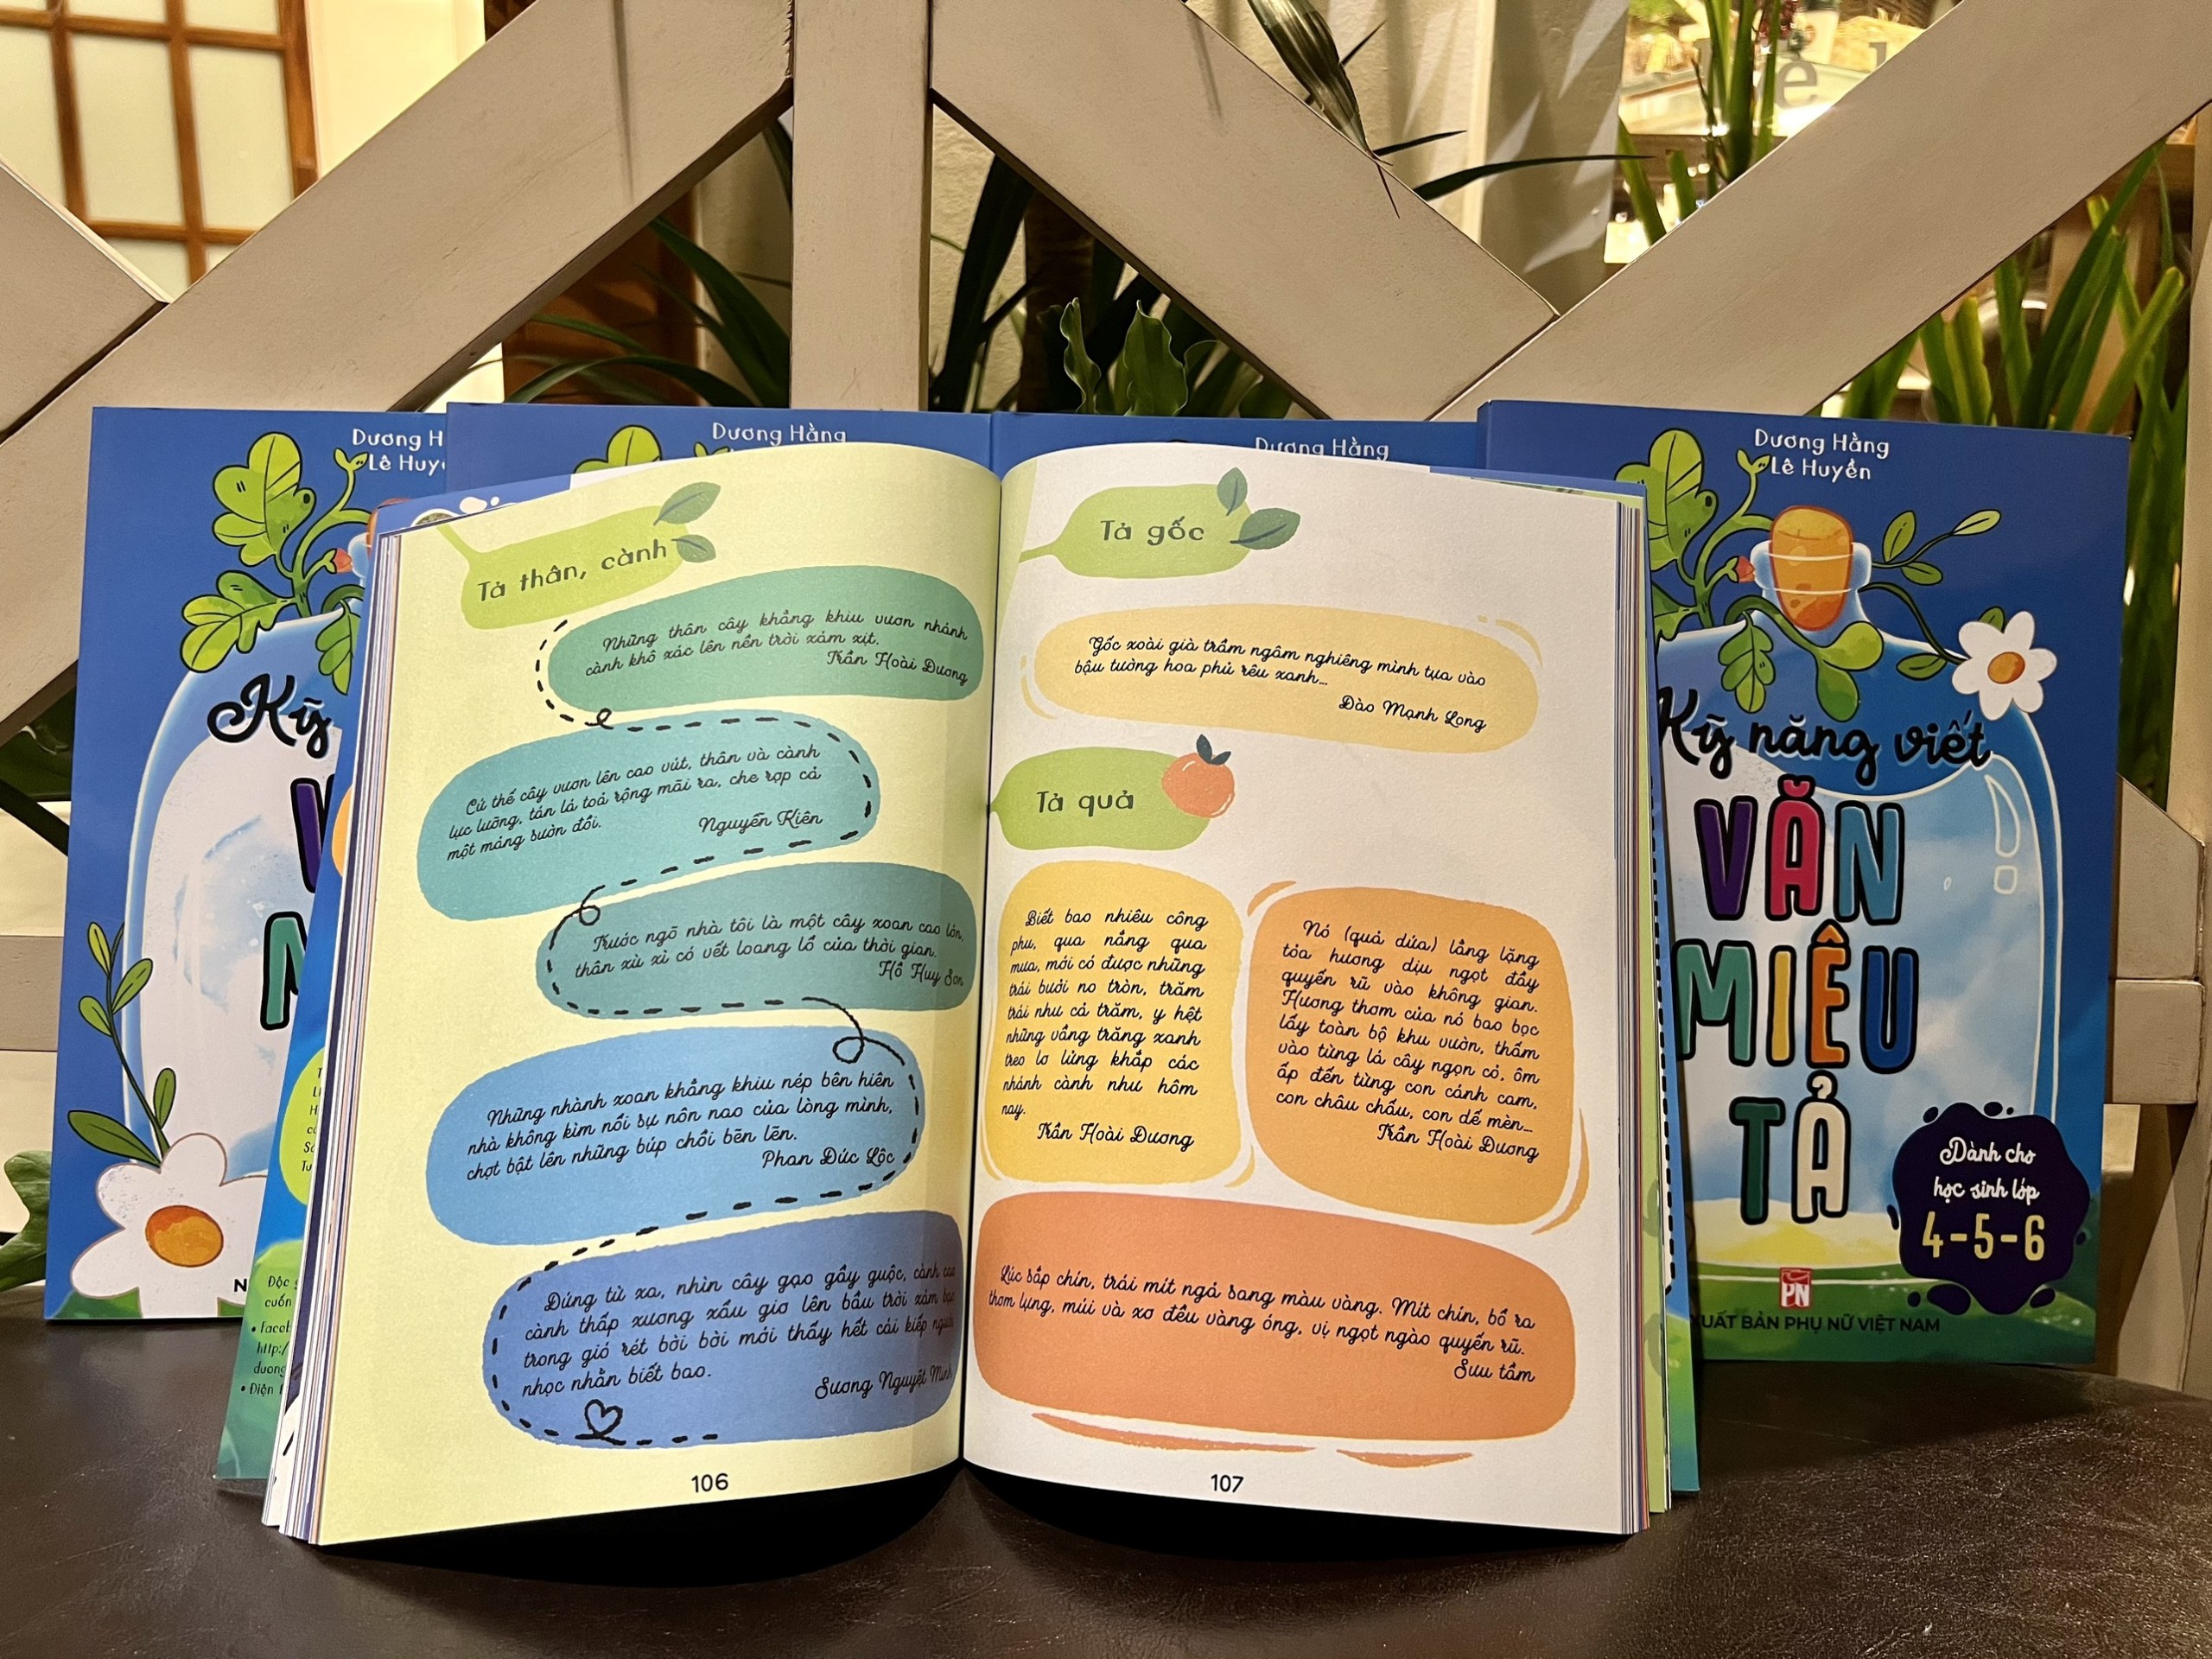 Dương H
Lê Huy
Kỹ
Dương Hằng
Dương Hằng
Dương Hằng
Lê Huyền
Kỹ năng viết
VĂN
MIÊU
TẢ
Dành cho
học sinh lớp
4-5-6
PN
XUẤT BẢN PHỤ NỮ VIỆT NAM
Tả thân, cành
Những thân cây khẳng khiu vươn nhánh
cành khô xác lên nền trời xám xịt.
Trần Hoài Dương
Cứ thế cây vươn lên cao vút, thân và cành
lực lưỡng, tán lá toả rộng mãi ra, che rợp cả
một mảng sườn đồi.
Nguyễn Kiên
Trước ngõ nhà tôi là một cây xoan cao lớn,
thân xù xì có vết loang lổ của thời gian.
Hồ Huy Sơn
Những nhành xoan khẳng khiu nép bên hiên
nhà không kìm nổi sự nôn nao của lòng mình,
chợt bật lên những búp chồi bẽn lẽn.
Phan Đức Lộc
Đứng từ xa, nhìn cây gạo gầy guộc, cành cao
cành thấp xương xẩu giơ lên bầu trời xám bạc
trong gió rét bời bời mới thấy hết cái kiếp người
nhọc nhằn biết bao.
Sương Nguyệt Minh
106
Tả gốc
Gốc xoài già trầm ngâm nghiêng mình tựa vào
bậu tường hoa phủ rêu xanh...
Đào Mạnh Long
Tả quả
Biết bao nhiêu công
phu, qua nắng qua
mưa, mới có được những
trái bưởi no tròn, trăm
trái như cả trăm, y hệt
những vầng trăng xanh
treo lơ lửng khắp các
nhánh cành như hôm
nay.
Trần Hoài Dương
Nó (quả dứa) lẳng lặng
tỏa hương dịu ngọt đầy
quyến rũ vào không gian.
Hương thơm của nó bao bọc
lấy toàn bộ khu vườn, thấm
vào từng lá cây ngọn cỏ, ôm
ấp đến từng con cánh cam,
con châu chấu, con dế mèn...
Trần Hoài Dương
Lúc sắp chín, trái mít ngả sang màu vàng. Mít chín, bổ ra
thơm lựng, múi và xơ đều vàng óng, vị ngọt ngào quyến rũ.
Sưu tầm
107